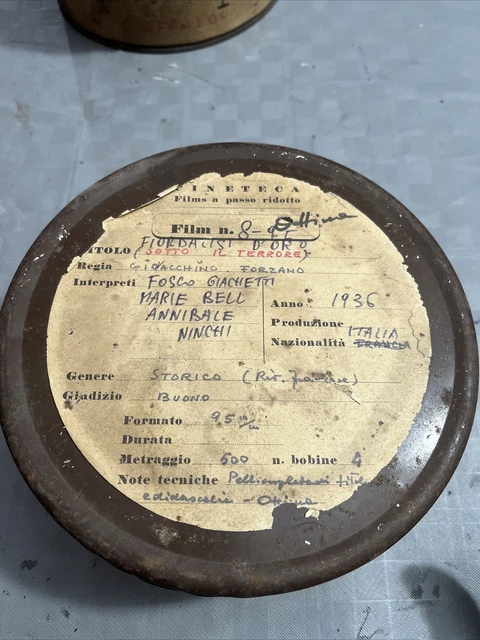 INETECA
Films a passo ridotto
Film n. 8- Ottima
FIORDALISI D'ORO
TITOLO (SOTTO IL TERRORE)
Regia GIOACCHINO FORZANO
Interpreti FOSCO GIACHETTI
MARIE BELL
ANNIBALE
NINCHI
Anno: 1936
Produzione ITALIA
Nazionalità FRANCIA
Genere STORICO (Riv. francese)
Giudizio BUONO
Formato 9,5 m/m
Durata
Metraggio 500 n. bobine 4
Note tecniche titoli
e didascalie - Ottima